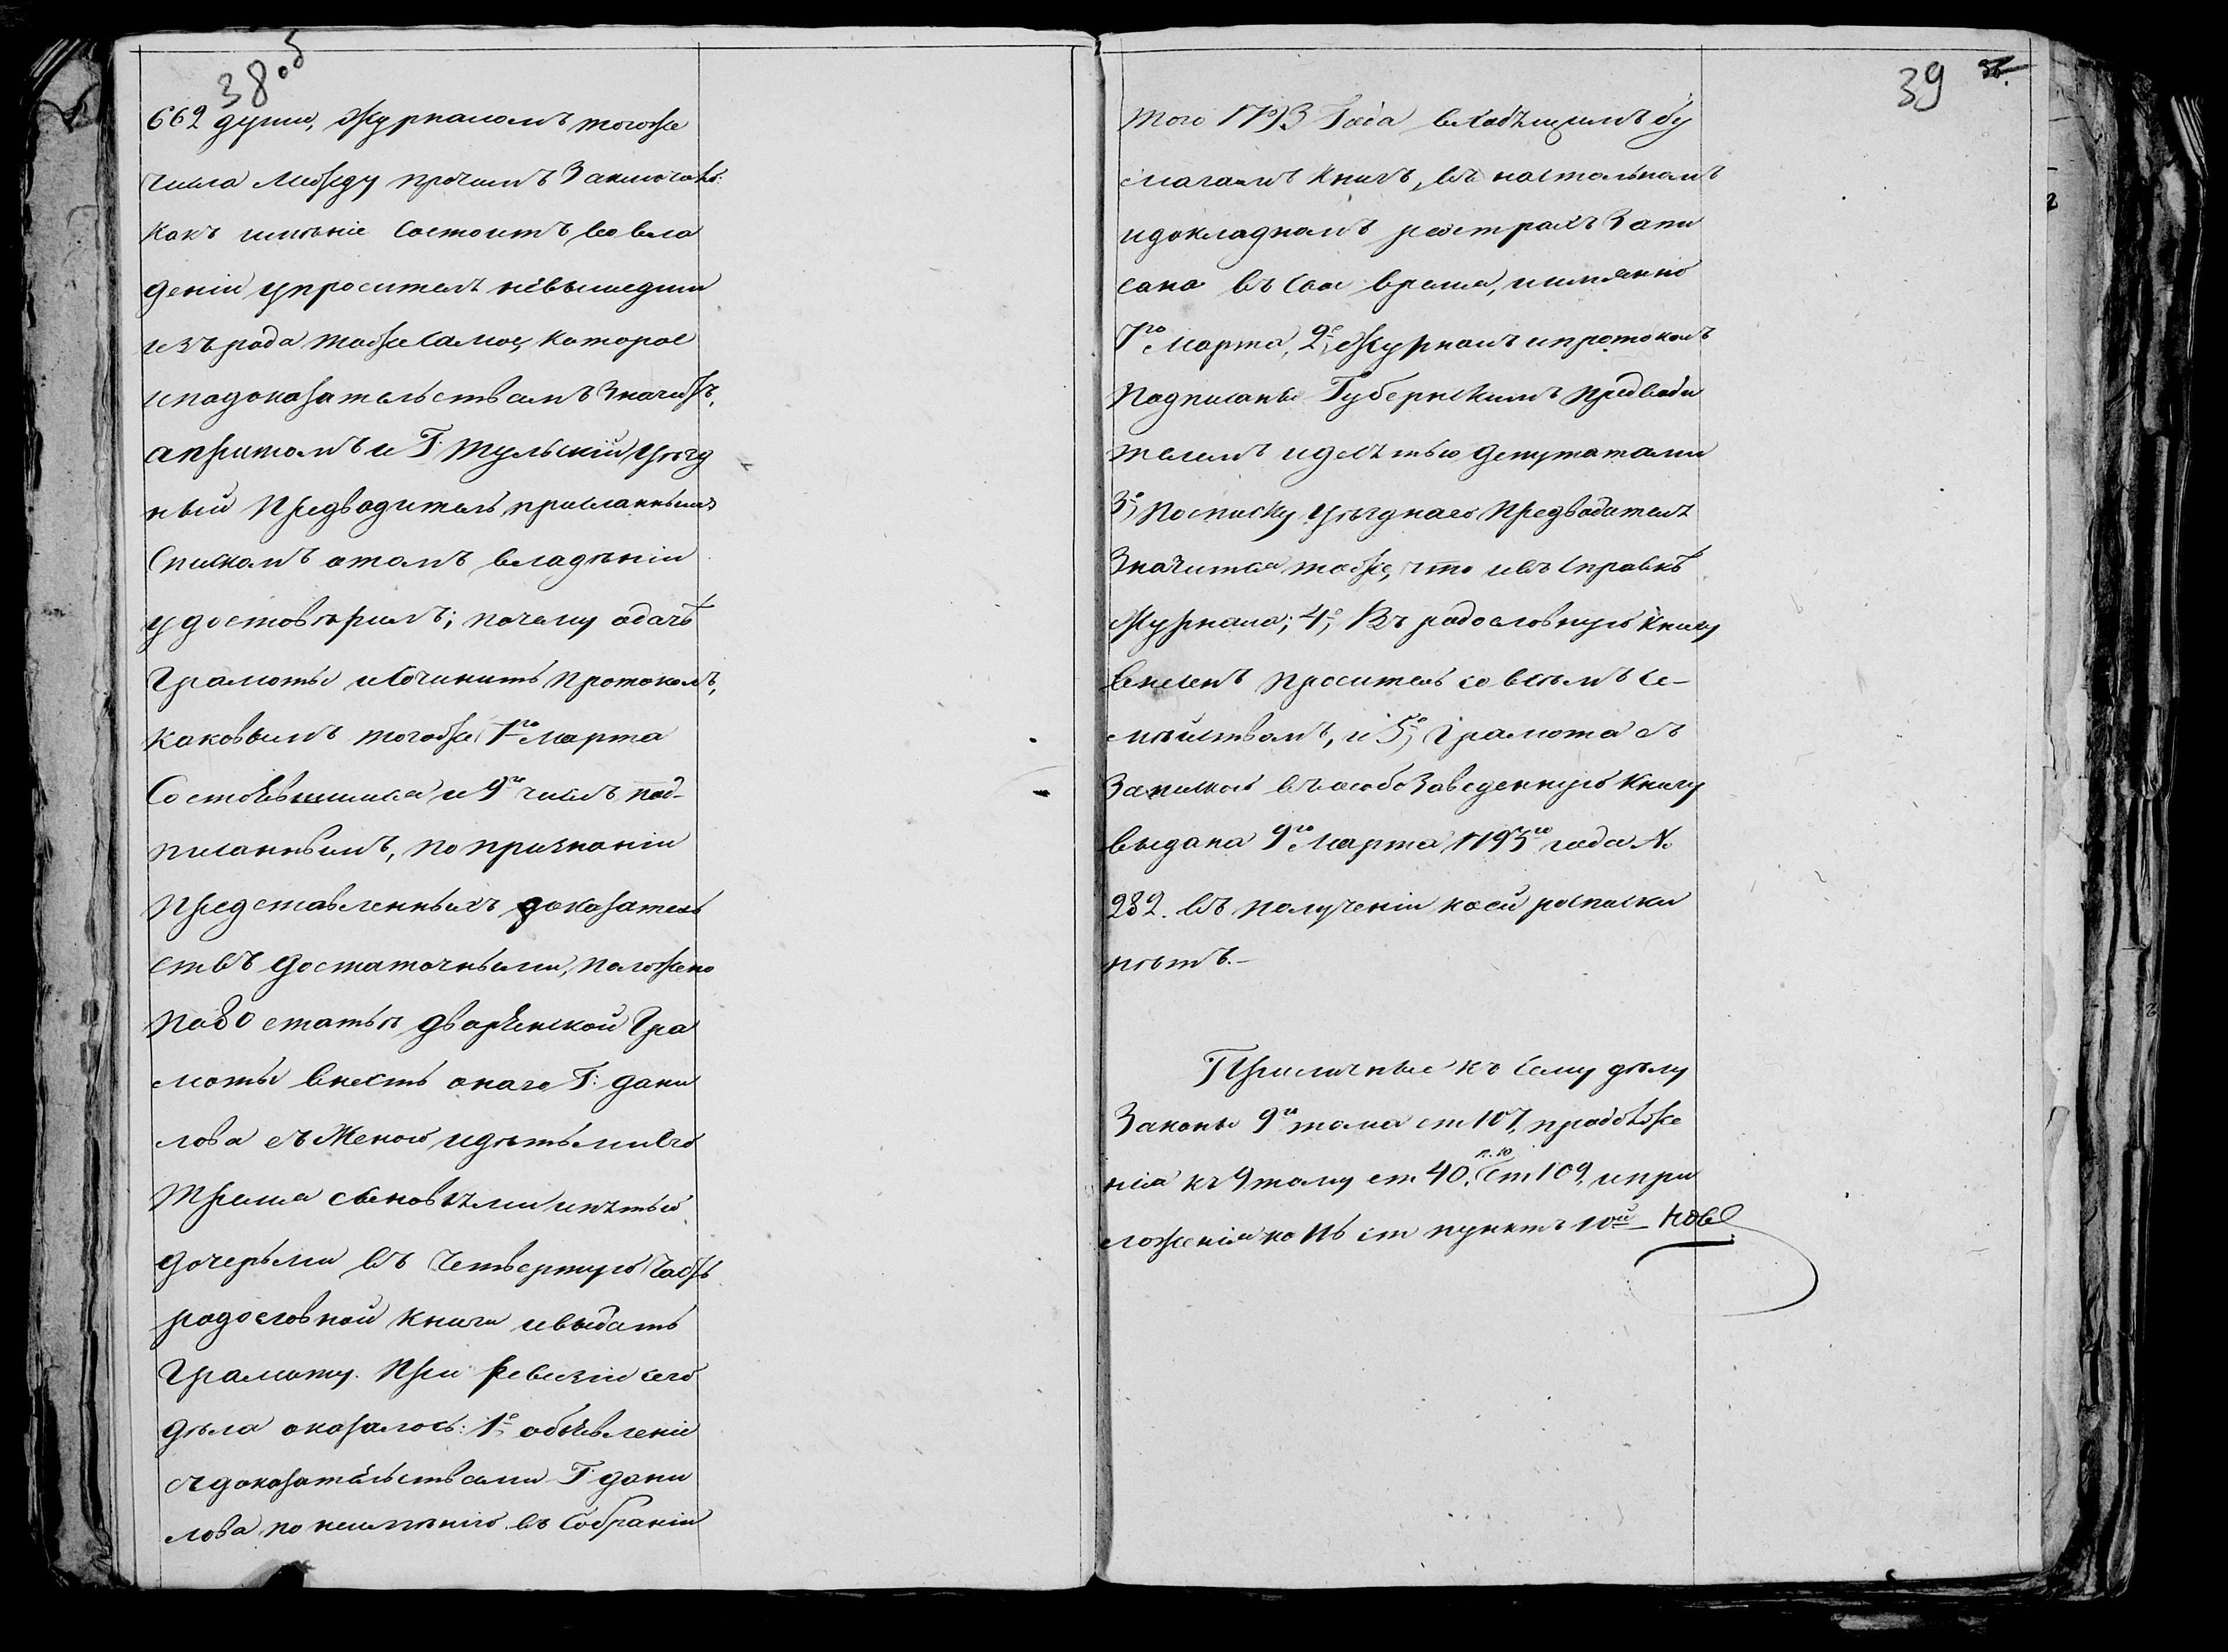 38 об
662 души, Журналомъ тогоже
числа между прочимъ Заключено:
какъ имѣніе состоитъ во вла
деніи упросителя невышедши
изъ рода тоже самое, которое
и подоказательствамъ Значитъ,
апритомъ и Г. Тульскій Уѣзд
ный Предводитель присланнымъ
Спискомъ отомъ владѣніи
удостовѣрилъ; почему одачѣ
Грамоты и Сочинить протоколъ,
каковымъ тогоже 1го Марта
Состоявшимся и 9го числъ под-
писаннымъ, по признаніи
Представленныхъ доказатель
ствъ достаточными, положено
По 80 статьѣ дворянской Гра
моты внесть онаго Г: Дани
лова съ Женою и дѣтьми его
Тремя сыновьями и пятью
дочерьми въ Четвертую Часть
родословной книги и выдать
Грамоту. При Ревизіи сего
дѣла оказалось: 1е, объявленіе
съ доказательствами Г. Дани
лова по неимѣнію въ Собраніи
39
того 1793 Года входящимъ бу
магамъ книгъ, въ настольномъ
и докладномъ реэстрахъ Запи
сано въ свое время, имянно
1го Марта, 2е, Журналъ и протоколъ
Подписаны Губернскимъ Предводи
телемъ и десятью депутатами
3е, По списку Уѣзднаго Предводителя
Значится тоже, что и въ справкѣ
Журнала; 4е, Въ родословную книгу
внесенъ проситель со всѣмъ се-
мѣйствомъ, и 5е, Грамота съ
Запискою въ особо Заведенную книгу
выдана 9го Марта 1793го года №
282. въ полученіи коей росписки
нѣтъ.-
Приличные къ сему дѣлу
Законы 9го тома ст 107, продолже
нія къ 9 тому ст 40. п. 10 ст 109, и при
ложеніи ко 116 ст пунктъ 10й